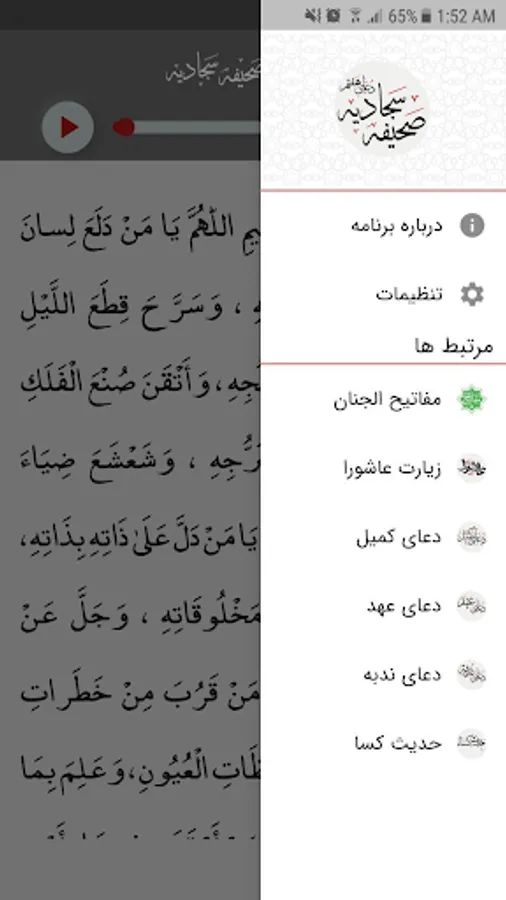 65% 1:52 AM
صحیفه سجادیه
دعای هفتم
سجادیه
صحیفه
درباره برنامه
تنظیمات
مرتبط ها
مفاتیح الجنان
زیارت عاشورا
دعای کمیل
دعای عهد
دعای ندبه
حدیث کسا
اللّٰهُمَّ يَا مَنْ دَلَعَ لِسانَ
، وَسَرَّحَ قِطَعَ اللَّيْلِ
وَأَتْقَنَ صُنْعَ الْفَلَكِ
، وَشَعْشَعَ ضِيَاءَ
يَا مَنْ دَلَّ عَلىٰ ذَاتِهِ بِذَاتِهِ،
مَخْلُوقَاتِهِ ، وَجَلَّ عَنْ
مَنْ قَرُبَ مِنْ خَطَراتِ
الْعُيُونِ، وَعَلِمَ بِمَا